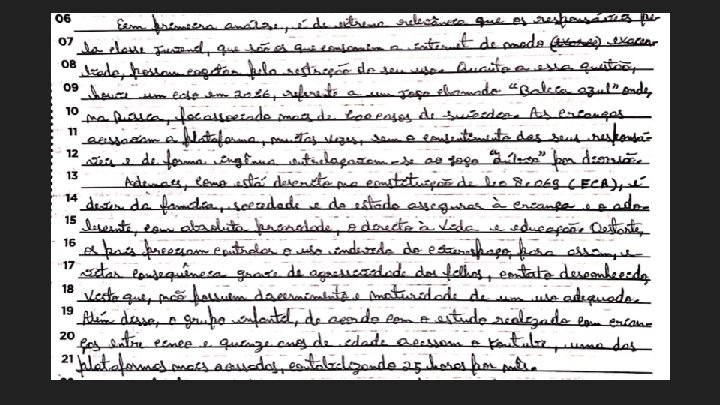 06 Em primeira análise, é de extrema relevância que os responsáveis pe-
07 la classe juvenil, que são os que consomem a internet de modo exacer-
08 bado, possam cogitar pela restrição do seu uso. Quanto a essa questão,
09 houve um caso em 2016, referente a um jogo chamado "Baleia azul" onde,
10 na Rússia, foi associado mais de 100 casos de suicídio. As crianças
11 acessavam a plataforma, muitas vezes, sem o consentimento dos seus responsá-
12 veis e de forma ingênua entrelaçavam-se ao jogo por diversão.
13 Ademais, como está descrito na constituição de lei 8.069 (ECA), é
14 dever da família, sociedade e do estado assegurar à criança e o ado-
15 lescente, com absoluta prioridade, o direito à vida e educação. Destarte,
16 os pais precisam controlar o uso indevido do para assim, e-
17 vitar consequência grave de agressividade dos filhos, contato desconhecido,
18 visto que, não possuem discernimento e maturidade de um uso adequado.
19 Além disso, o grupo infantil, de acordo com o estudo realizado com crian-
20 ças entre cinco e quinze anos de idade acessam o Youtube, uma das
21 plataformas mais acessadas, contabilizando 25 horas por mês.